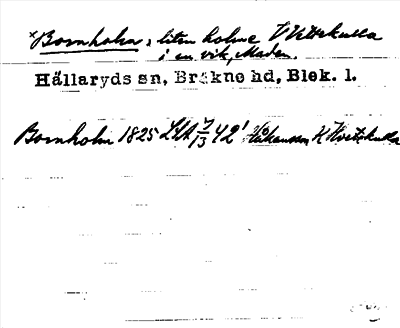 × Bornholm, liten holme V Hvitskulla
i en vik, Maden.
Hällaryds sn, Bräkne hd, Blek. l.
Bornholm 1825 LSA 7/13 42' Håkansson K Hvitskulla